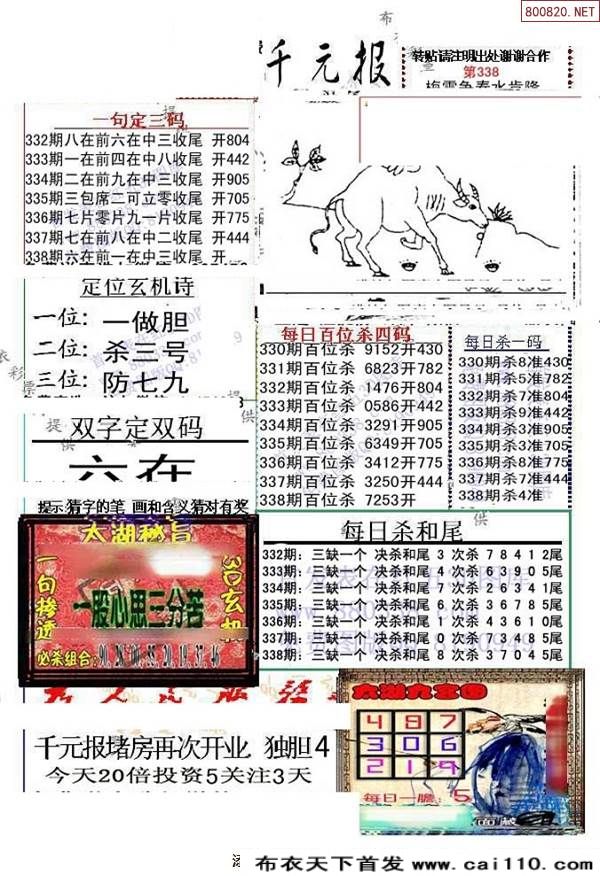 800820.NET
千元报
转贴请注明出处谢谢合作
第338
梅雪争春水肯降
一句定三码
332期八在前六在中三收尾 开804
333期一在前四在中八收尾 开442
334期二在前九在中三收尾 开905
335期三包席二可立零收尾 开705
336期七片零片九一片收尾 开775
337期七在前八在中二收尾 开444
338期六在前一在中三收尾 开
定位玄机诗
一位: 一做胆
二位: 杀三号
三位: 防七九
每日百位杀四码
330期百位杀 9152开430
331期百位杀 6823开782
332期百位杀 1476开804
333期百位杀 0586开442
334期百位杀 3291开905
335期百位杀 6349开705
336期百位杀 3412开775
337期百位杀 3250开444
338期百位杀 7253开
每日杀一码
330期杀8准430
331期杀5准782
332期杀7准804
333期杀9准442
334期杀3准905
335期杀3准705
336期杀8准775
337期杀7准444
338期杀4准
双字定双码
六在
提示:猜字的笔 画和含义猜对有奖
太湖秘旨
一句掺透
3D玄机
一股心思三分苦
必杀组合:90, 28, 00, 32, 20, 19, 37, 46
每日杀和尾
332期: 三缺一个 决杀和尾 3 次杀 7 8 4 1 2尾
333期: 三缺一个 决杀和尾 4 次杀 6 3 9 0 5尾
334期: 三缺一个 决杀和尾 7 次杀 2 6 3 4 1尾
335期: 三缺一个 决杀和尾 6 次杀 3 6 7 8 5尾
336期: 三缺一个 决杀和尾 1 次杀 4 3 6 1 0尾
337期: 三缺一个 决杀和尾 0 次杀 7 4 0 8 5尾
338期: 三缺一个 决杀和尾 8 次杀 3 7 0 4 5尾
千元报堵房再次开业 独胆4
今天20倍投资5关注3天
太湖九宫图
4 9 7
3 0 6
2 1 9
每日一胆: 5
布衣天下首发 www.cai110.com